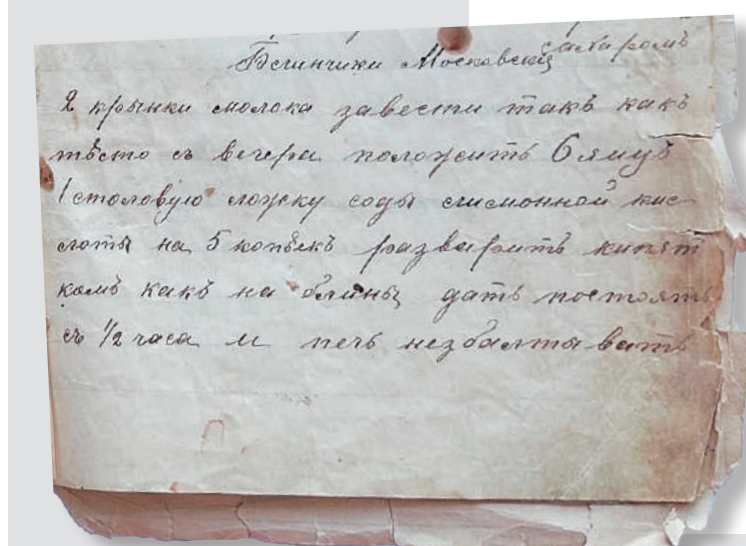 сахаромъ
Блинчики Московскія
2 крынки молока завести такъ какъ
тѣсто съ вечера положить 6 яицъ
1 столовую ложку соды лимонной кис-
лоты на 5 копѣекъ разварить кипят
комъ какъ на блины дать постоять
съ 1/2 часа и печь незбалтывать